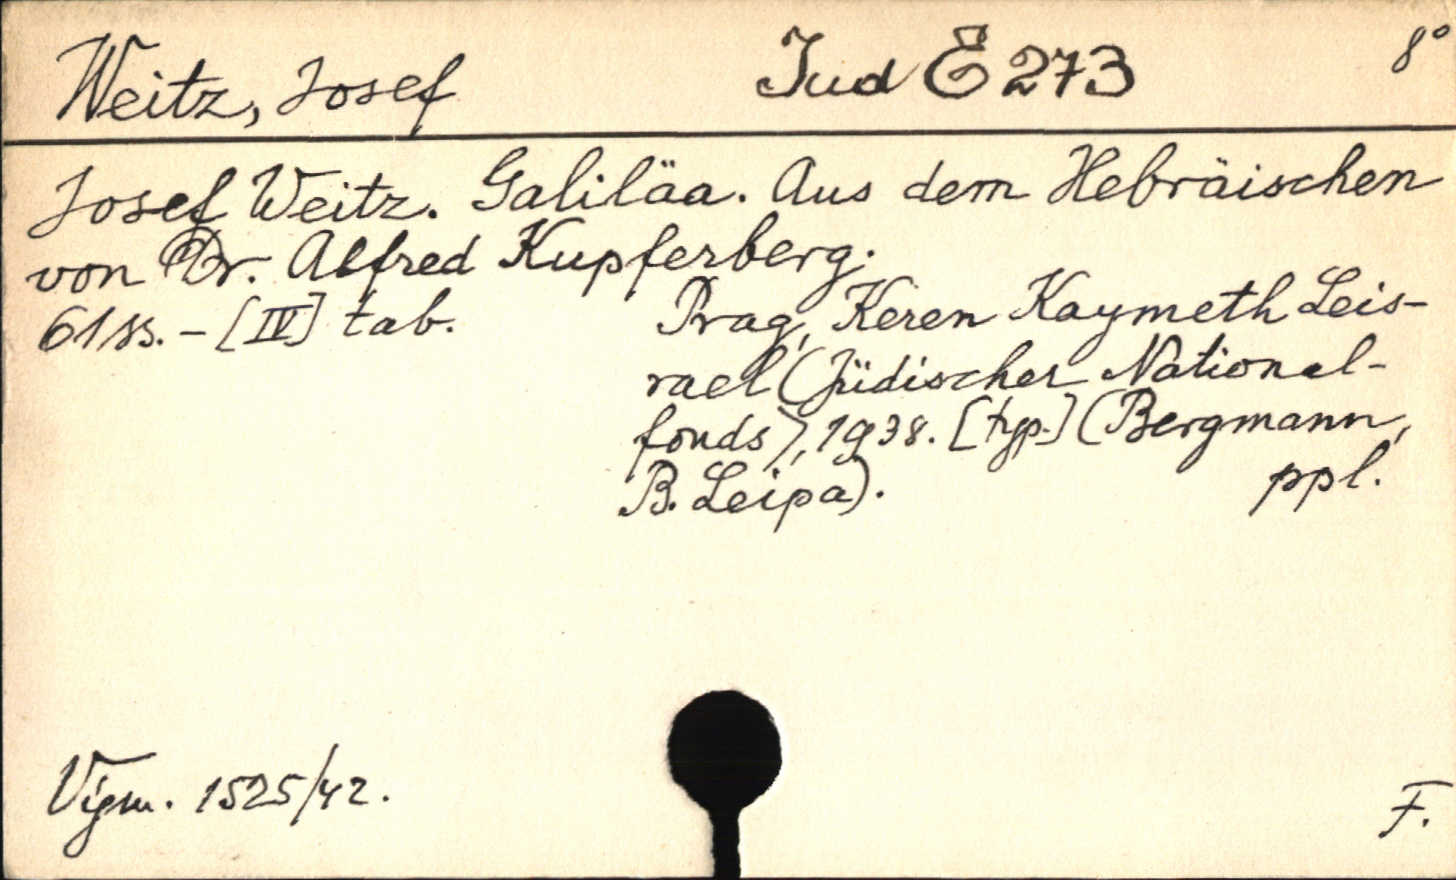 Weitz, Josef Jud E 273 8°
Josef Weitz. Galiläa. Aus dem Hebräischen
von Dr. Alfred Kupferberg.
61 ss. - [IV] tab. Prag, Keren Kaymeth Leis-
rael (Jüdischer National-
fonds), 1938. [typ.] (Bergmann,
B. Leipa). ppl.
1525/42.
F.